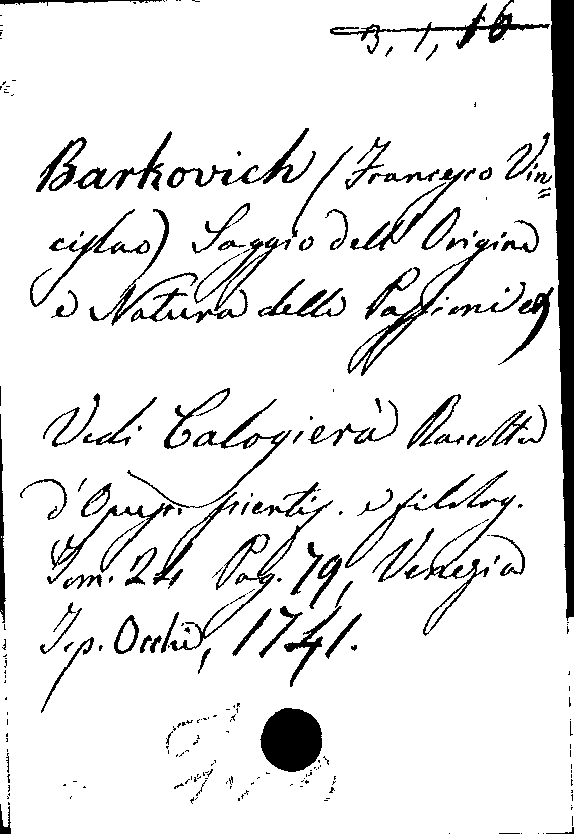 3, 1, 16
Barkovich (Francesco Vin=
cislao) Saggio dell' Origine
e Natura delle Passioni etc
Vedi Calogierà Raccolta
d'Opusc. scientif. e filolog.
Tom. 24 Pag. 79, Venezia
Tip. Occhi, 1741.